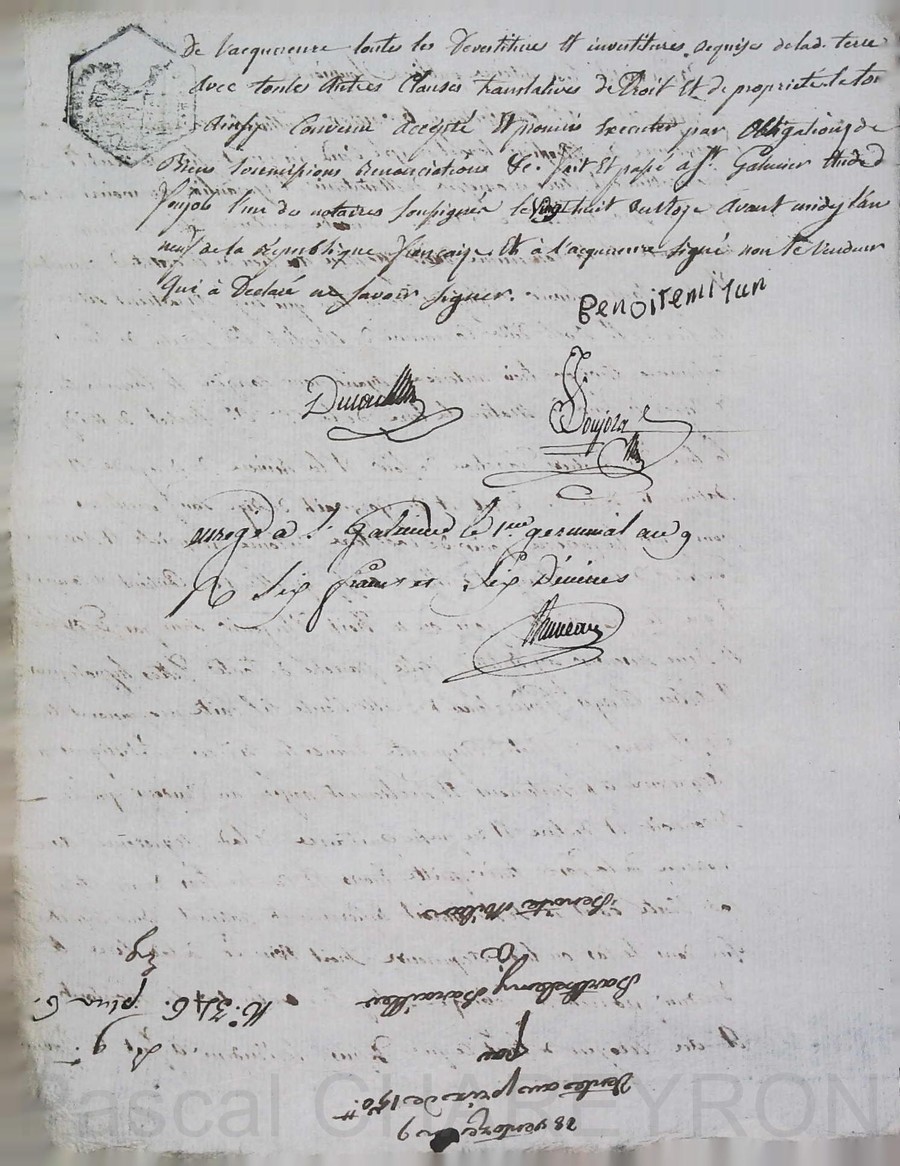 De l'acquereure toutes les Devestitures et investitures requises de lad. terre
avec toutes autres Clauses translatives de Droit Et de propriété le tou
ainsy Convenu accepté Et promis executer par obligations de
Biens soumissions Renonciations &c. fait Et passé a St. Galmier Etude d
l'un des notaires soussignés le vingt huit ventoze avant midy l'an
neuf de la République française Et à l'acquereure signé non le vendeur
qui à Declaré ne savoir signer.
Benoitemilan
enregé a St Galmier le 1er germinal an 9
R six francs et six Décimes
28 ventoze an 9
Vente au prix de 150.tt
par
Barthelemy Barailler
a
Benoite Milan
N.° 346.